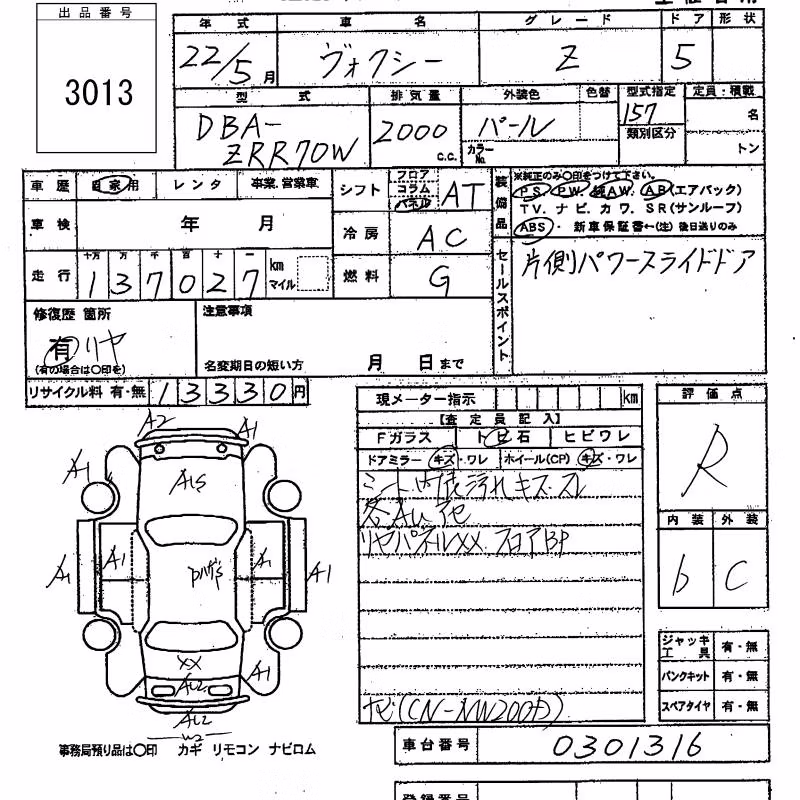 出品番号
3013
年式 車名 グレード ドア 形状
22/5月 ヴォクシー Z 5
型式 排気量 外装色 色替 型式指定 定員・積載
DBA-
ZRR70W 2000 c.c. パール カラーNo. 157 類別区分 名
トン
車歴 自家用 レンタ 事業.営業車 シフト フロア コラム パネル AT
装備品 ※純正のみ○印をつけて下さい。
PS PW 純AW. AB(エアバック)
TV. ナビ. カワ. SR(サンルーフ)
ABS ・ 新車保証書←(注) 後日送りのみ
車検 年 月 冷房 AC
走行 十万 万 千 百 十 一
137027 km マイル 燃料 G
セールスポイント 片側パワースライドドア
修復歴 箇所 注意事項
有 リヤ
(有の場合は○印を) 名変期日の短い方 月 日まで
リサイクル料 有・無 13330円
現メーター指示 km
【査定員記入】
Fガラス トビ石 ヒビワレ
ドアミラー キズ・ワレ ホイール(CP) キズ・ワレ
シート内張汚れキズ・スレ
リヤパネルXX フロアBP
ナビ(CN-MW200D)
評価点
R
内装 外装
b C
ジャッキ工具 有・無
パンクキット 有・無
スペアタイヤ 有・無
A2 A1
A1 A1S
A1 A1 A1 A1
XX
A1
AU2
AU2
W2
事務局預り品は○印 カギ リモコン ナビロム
車台番号 0301316